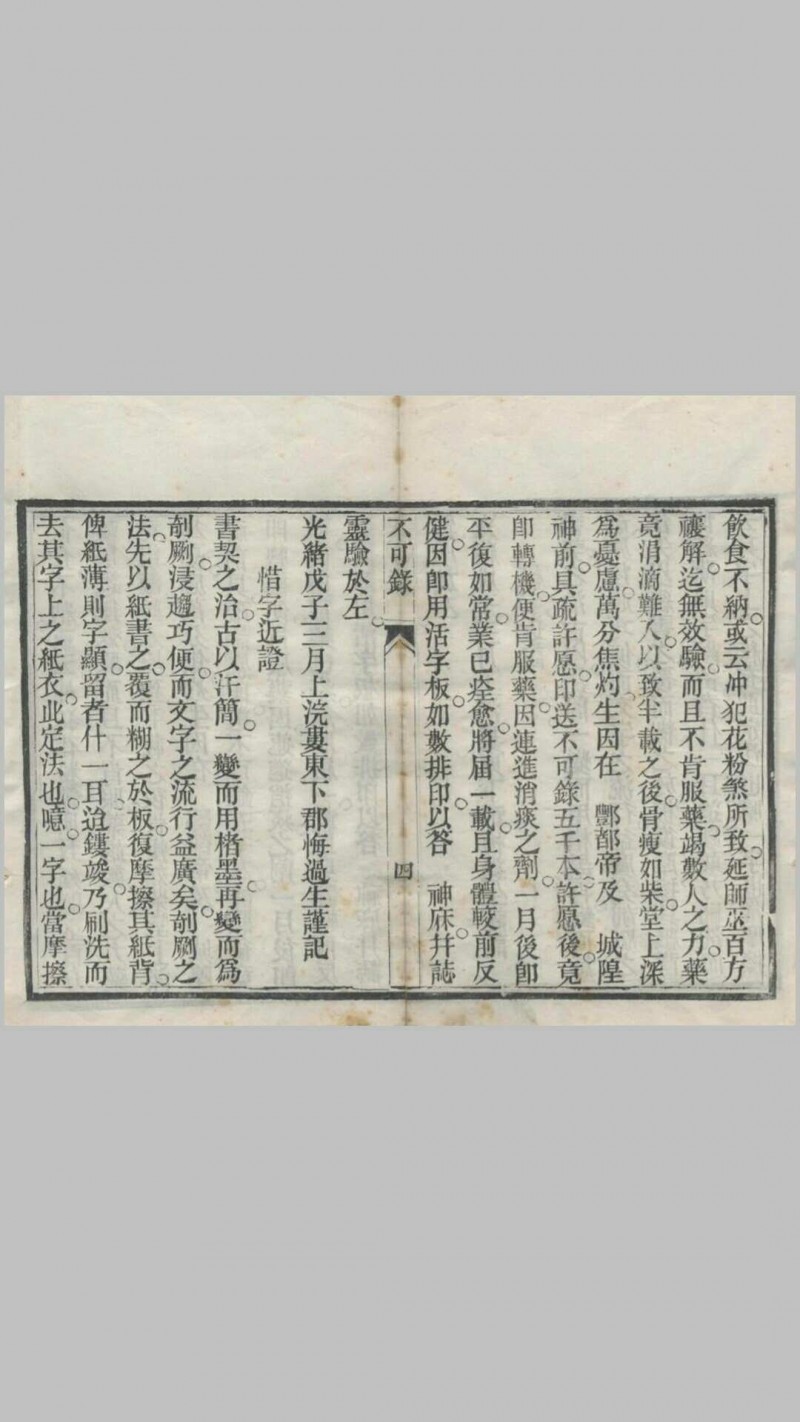 飲食不納。或云冲犯花粉煞所致。延師巫百方
禳解。迄無效驗。而且不肯服藥。竭數人之力。藥
竟涓滴難入。以致半載之後。骨瘦如柴。堂上深
爲憂慮。萬分焦灼。生因在　酆都帝及　城隍
神前。具疏許愿。印送不可錄五千本。許愿後。竟
卽轉機。便肯服藥。因連進消痰之劑。一月後卽
平復如常。業已痊愈。將届一載。且身體較前反
健。因卽用活字板。如數排印。以答　神庥。幷誌
不可錄　四
靈驗於左。
光緒戊子三月上浣婁東下郡悔過生謹記
惜字近證
書契之治。古以汗簡。一變而用楮墨。再變而爲
剞劂。浸趨巧便。而文字之流行益廣矣。剞劂之
法。先以紙書之。覆而糊之於板。復摩擦其紙背。
俾紙薄則字顯。留者什一耳。迨鏤竣。乃刷洗而
去其字上之紙衣。此定法也。噫。一字也。當摩擦